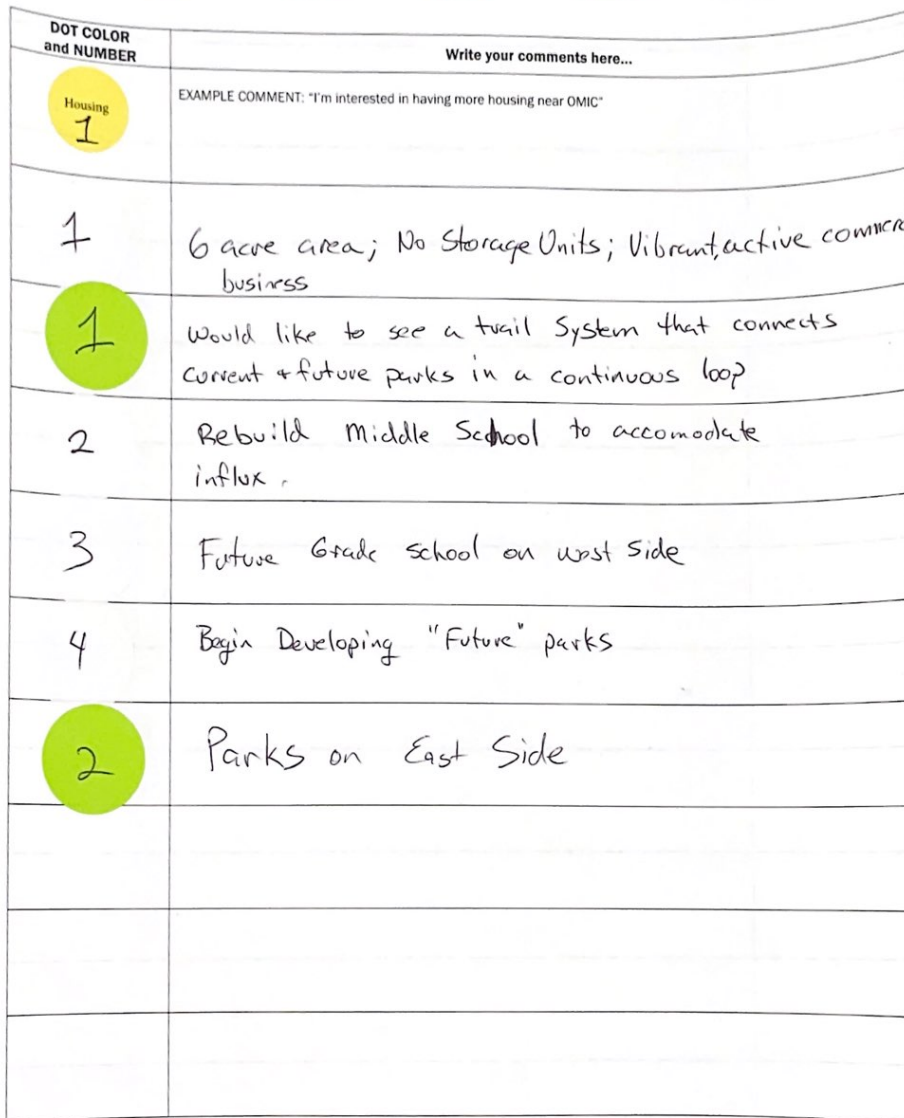 DOT COLOR
and NUMBER
Write your comments here...
Housing
1
EXAMPLE COMMENT: "I'm interested in having more housing near OMIC"
1
6 acre area; No Storage Units; Vibrant, active
business
1
Would like to see a trail System that connects
current + future parks in a continuous loop
2
Rebuild Middle School to accomodate
influx.
3
Future Grade school on west side
4
Begin Developing "Future" parks
2
Parks on East Side